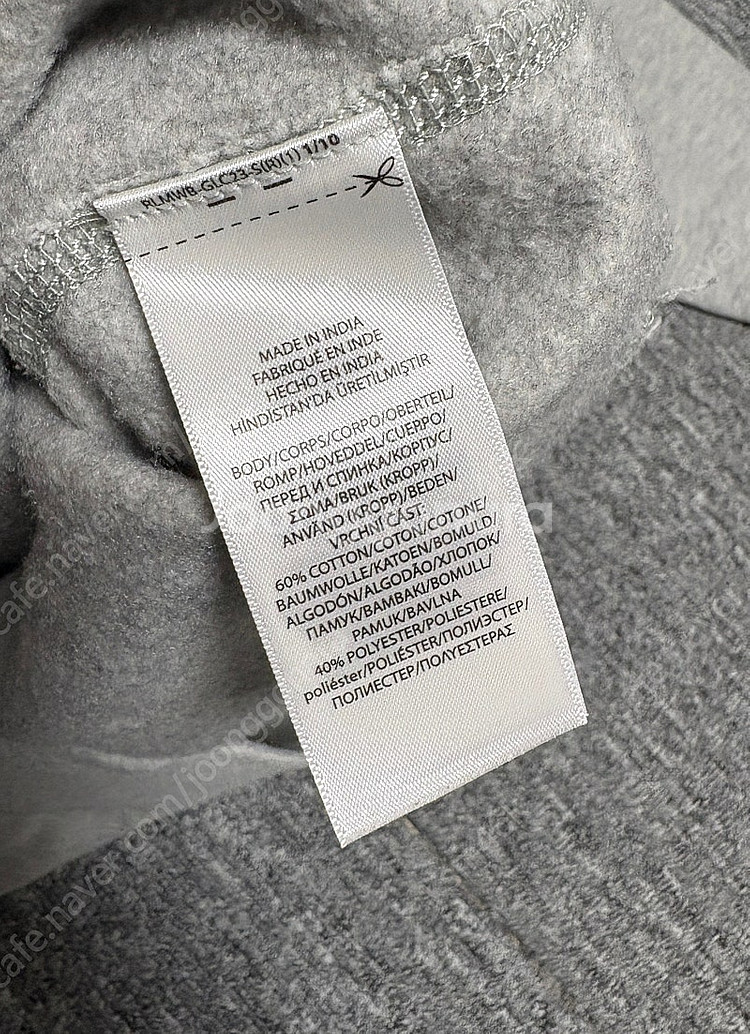 RLMWB-GLC23-S(R)(1) 1/10
MADE IN INDIA
FABRIQUÉ EN INDE
HECHO EN INDIA
HİNDİSTAN'DA ÜRETİLMİŞTİR
BODY/CORPS/CORPO/OBERTEIL/
ROMP/HOVEDDEL/CUERPO/
ПЕРЕД И СПИНКА/КОРПУС/
ΣΩΜΑ/BRUK (KROPP)/
ANVÄND (KROPP)/BEDEN/
VRCHNÍ ČÁST:
60% COTTON/COTON/COTONE/
BAUMWOLLE/KATOEN/BOMULD/
ALGODÓN/ALGODÃO/ХЛОПОК/
ПАМУК/ΒΑΜΒΑΚΙ/BOMULL/
PAMUK/BAVLNA
40% POLYESTER/POLIESTERE/
poliéster/POLIÉSTER/ПОЛИЭСТЕР/
ПОЛИЕСТЕР/ΠΟΛΥΕΣΤΕΡΑΣ
cafe.naver.com/joongg